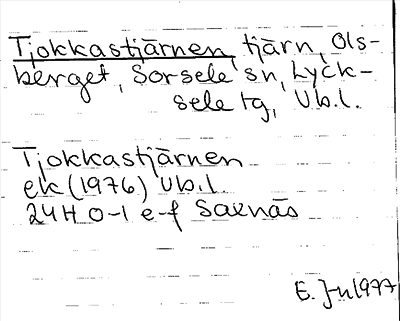 Tjokkastjärnen, tjärn, Ols-
berget, Sorsele sn, Lyck-
sele tg, Vb.l.
Tjokkastjärnen
ek (1976) Vb.l.
24H 0-1 e-f Saxnäs
E. J-n 1977